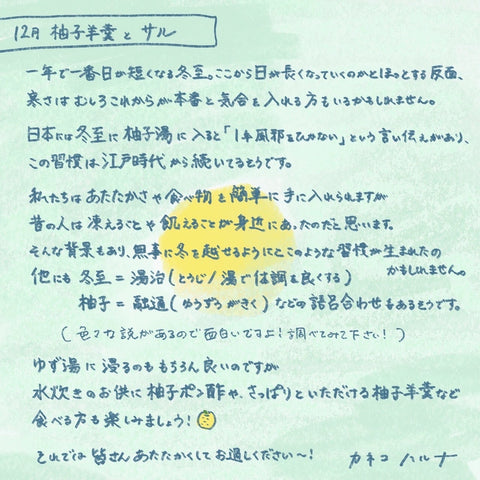 12月 柚子羊羹と サル
一年で一番日が短くなる冬至。ここから日が長くなっていくのかとほっとする反面、
寒さはむしろこれからが本番と気合を入れる方もいるかもしれません。
日本には冬至に柚子湯に入ると「1年風邪をひかない」という言い伝えがあり、
この習慣は江戸時代から続いてるそうです。
私たちはあたたかさや食べ物を簡単に手に入れられますが
昔の人は凍えることや飢えることが身近にあったのだと思います。
そんな背景もあり、無事に冬を越せるようにとこのような習慣が生まれたの
かもしれません。
他にも 冬至=湯治(とうじ/湯で体調を良くする)
柚子=融通(ゆうずうがきく)などの語呂合わせもあるそうです。
(色々な説があるので面白いですよ!調べてみて下さい!)
ゆず湯に浸るのももちろん良いのですが
水炊きのお供に柚子ポン酢や、さっぱりといただける柚子羊羹など
食べる方も楽しみましょう!
それでは皆さんあたたかくしてお過しください〜!
カネコ ハルナ